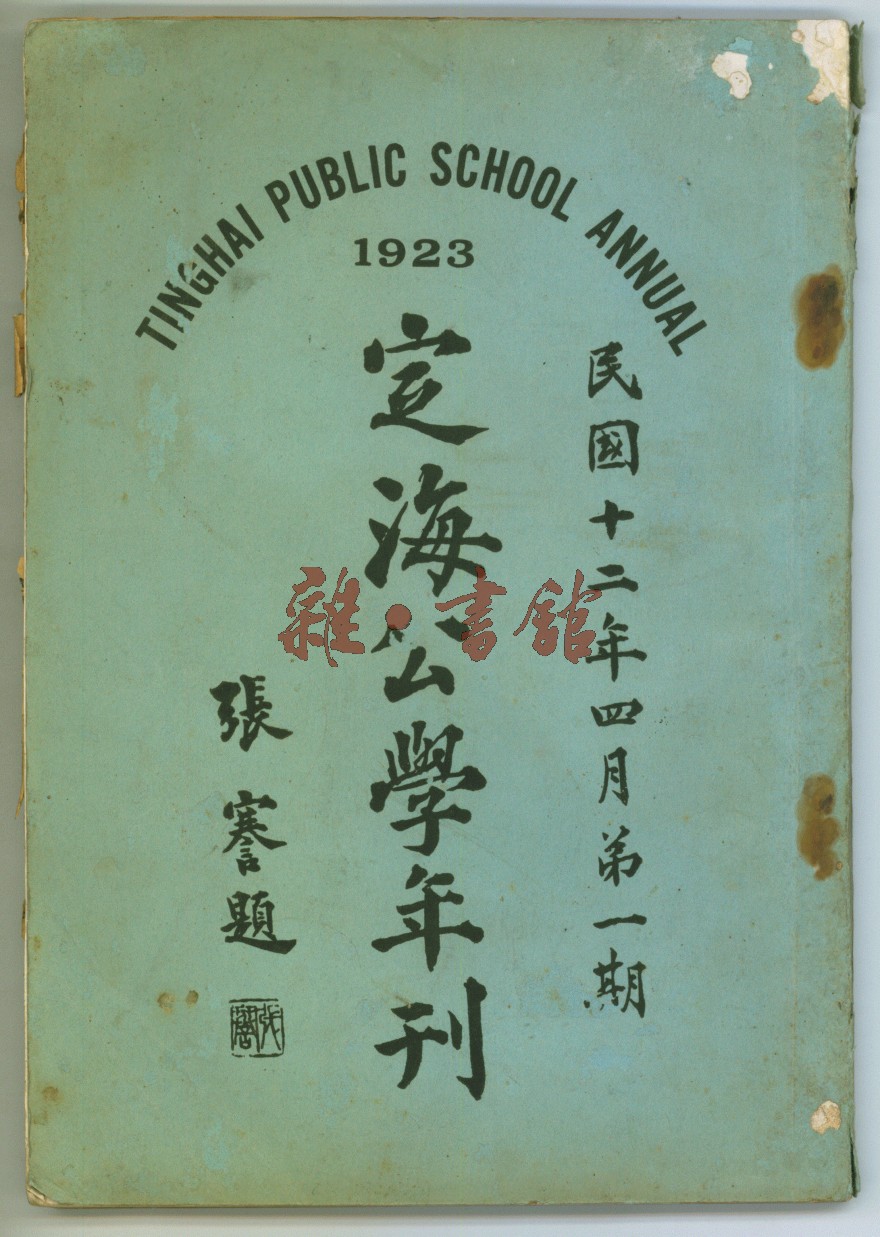 TINGHAI PUBLIC SCHOOL ANNUAL
1923
民國十二年四月第一期
定海公學年刊
張謇題
張謇
雜·書館